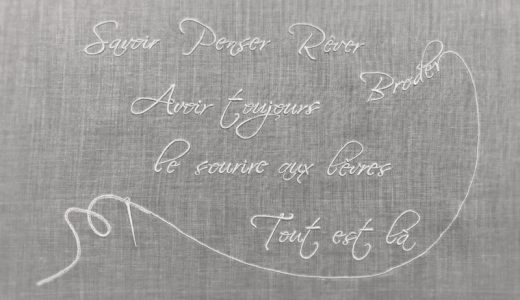 Savoir Penser Rêver
Broder
Avoir toujours
le sourire aux lèvres
Tout est là